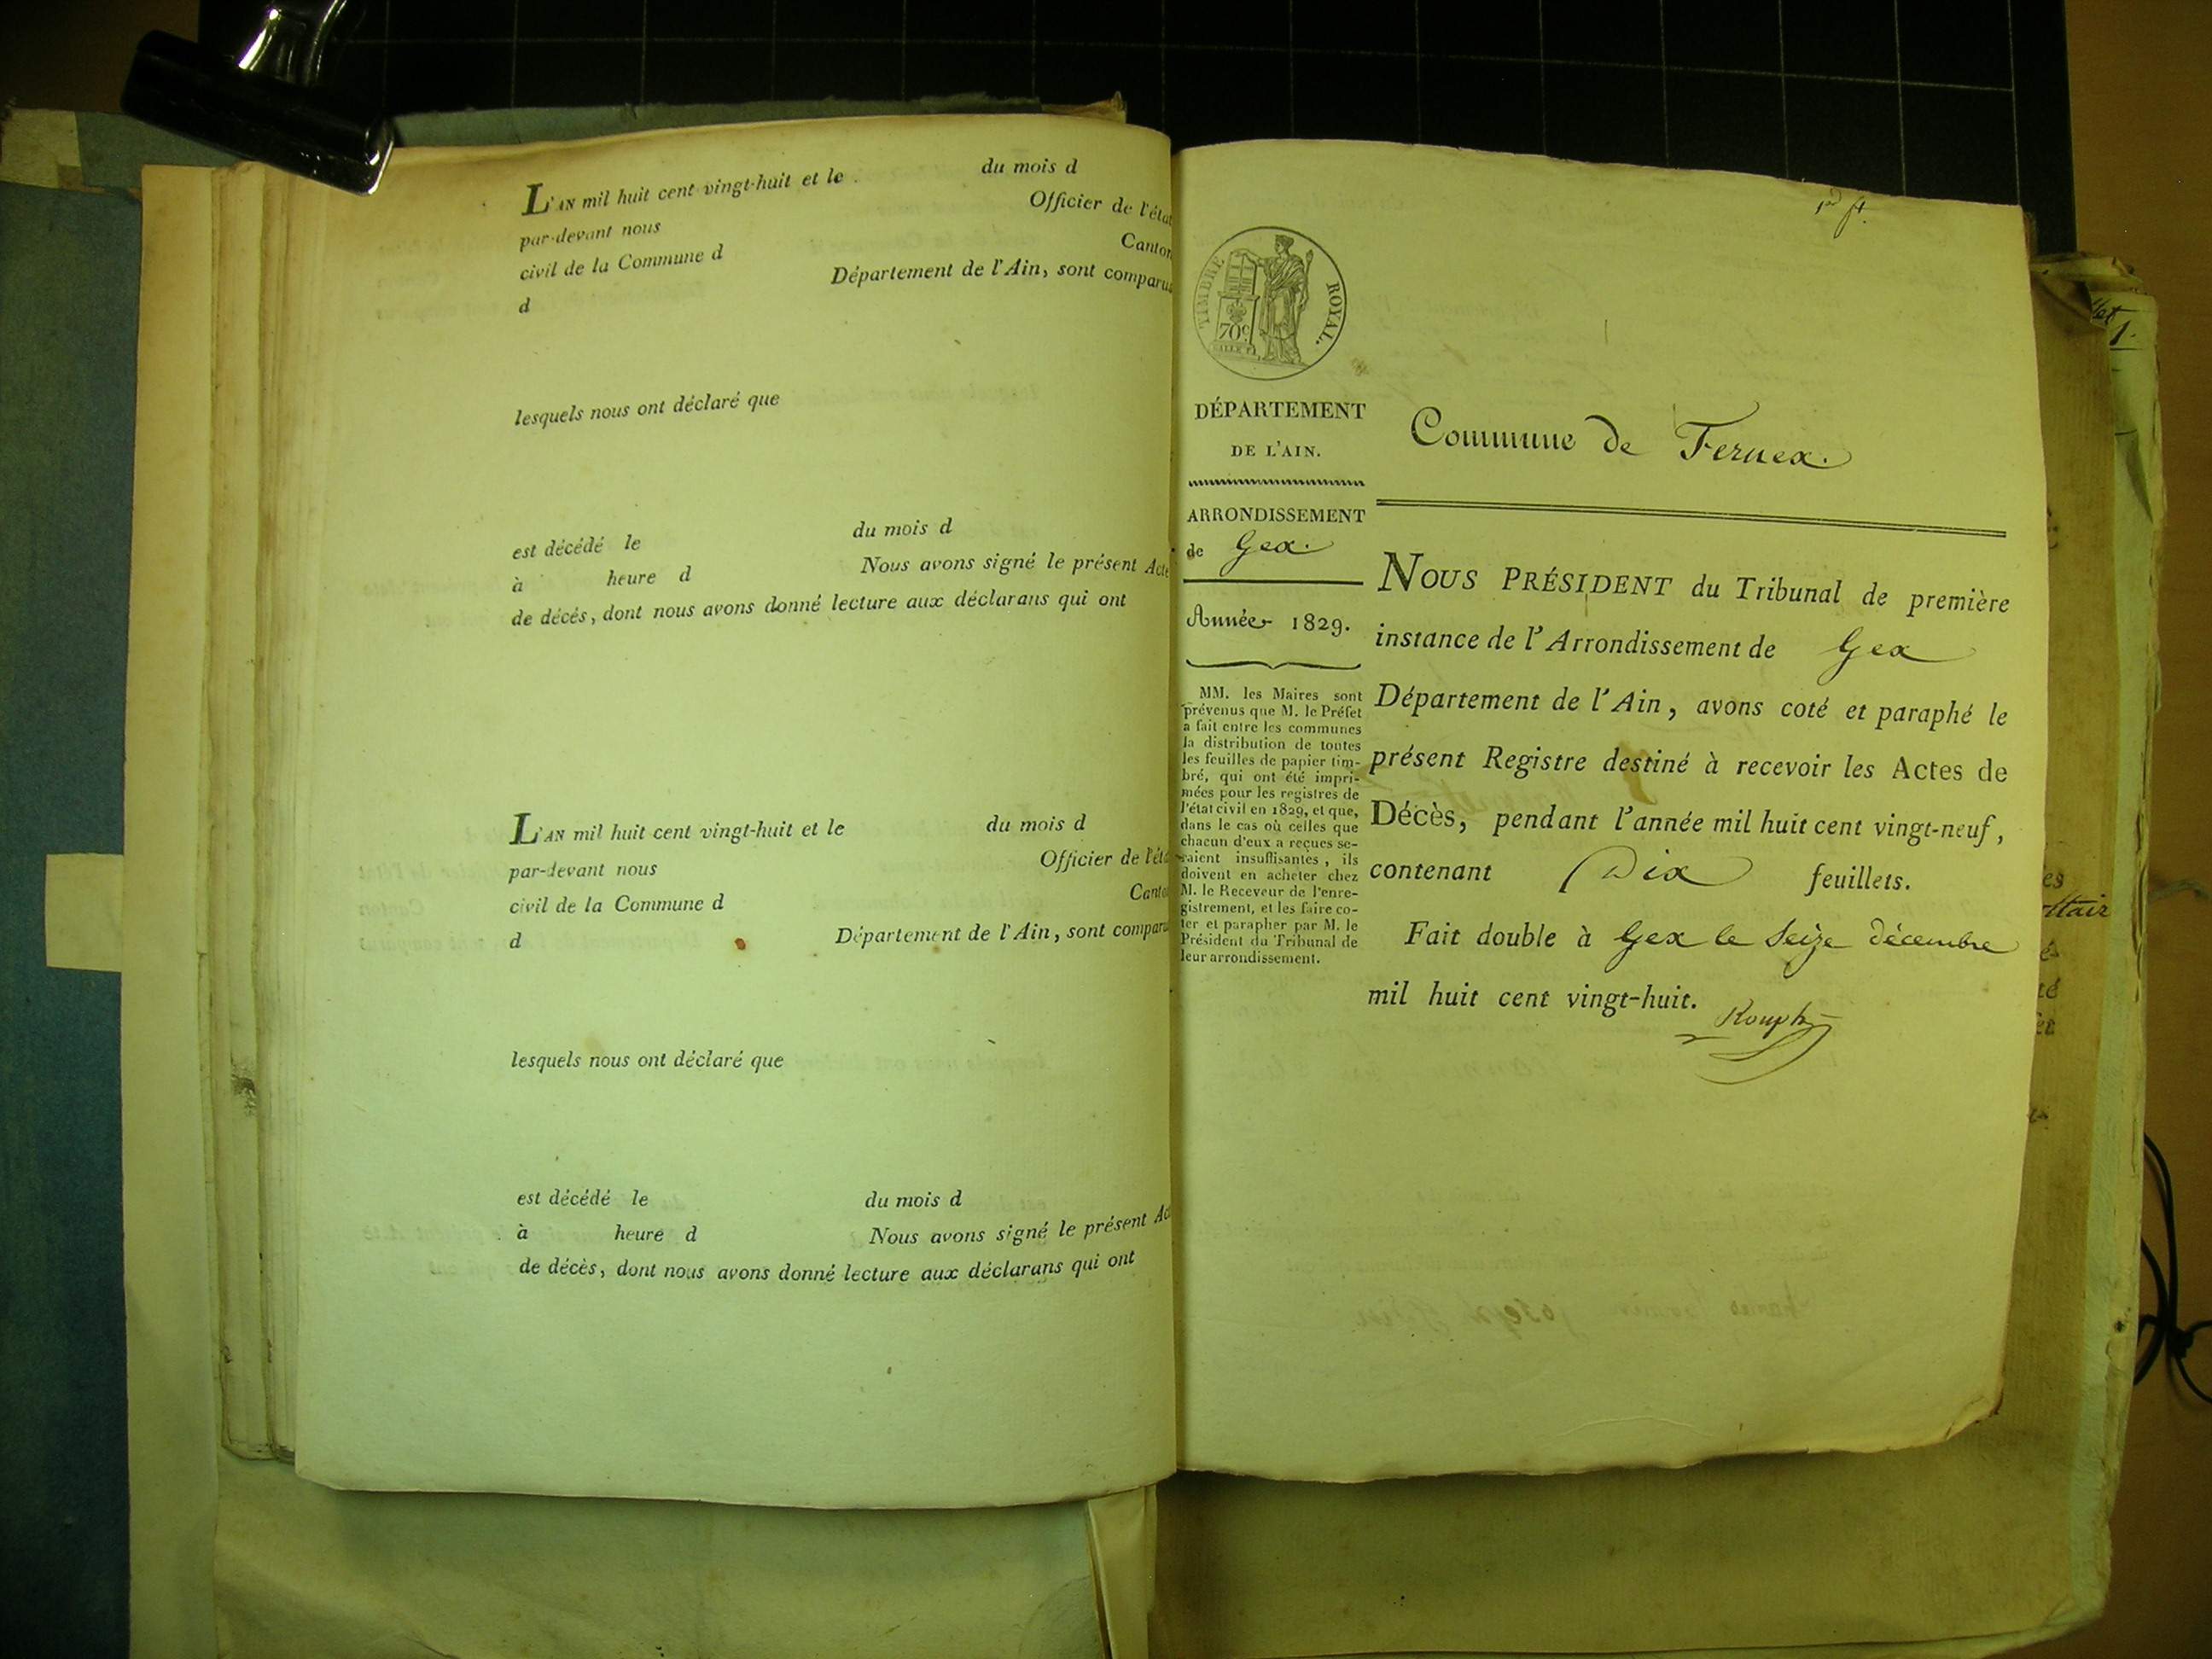 L'AN mil huit cent vingt-huit et le du mois d
par-devant nous Officier de l'état
civil de la Commune d Canton
d Département de l'Ain, sont comparus
lesquels nous ont déclaré que
est décédé le du mois d
à heure d Nous avons signé le présent Acte
de décès, dont nous avons donné lecture aux déclarans qui ont
L'AN mil huit cent vingt-huit et le du mois d
par-devant nous Officier de l'éta
civil de la Commune d Canto
d Département de l'Ain, sont comparu
lesquels nous ont déclaré que
est décédé le du mois d
à heure d Nous avons signé le présent Ac
de décès, dont nous avons donné lecture aux déclarans qui ont
TIMBRE ROYAL.
70c.
DÉPARTEMENT
DE L'AIN.
ARRONDISSEMENT
de Gex.
Année 1829.
MM. les Maires sont
prévenus que M. le Préfet
a fait entre les communes
la distribution de toutes
les feuilles de papier tim-
bré, qui ont été impri-
mées pour les registres de
l'état civil en 1829, et que,
dans le cas où celles que
chacun d'eux a reçues se-
raient insuffisantes, ils
doivent en acheter chez
M. le Receveur de l'enre-
gistrement, et les faire co-
ter et parapher par M. le
Président du Tribunal de
leur arrondissement.
Commune de Fernex.
NOUS PRÉSIDENT du Tribunal de première
instance de l'Arrondissement de Gex
Département de l'Ain, avons coté et paraphé le
présent Registre destiné à recevoir les Actes de
Décès, pendant l'année mil huit cent vingt-neuf,
contenant Dix feuillets.
Fait double à Gex le Seize décembre
mil huit cent vingt-huit.